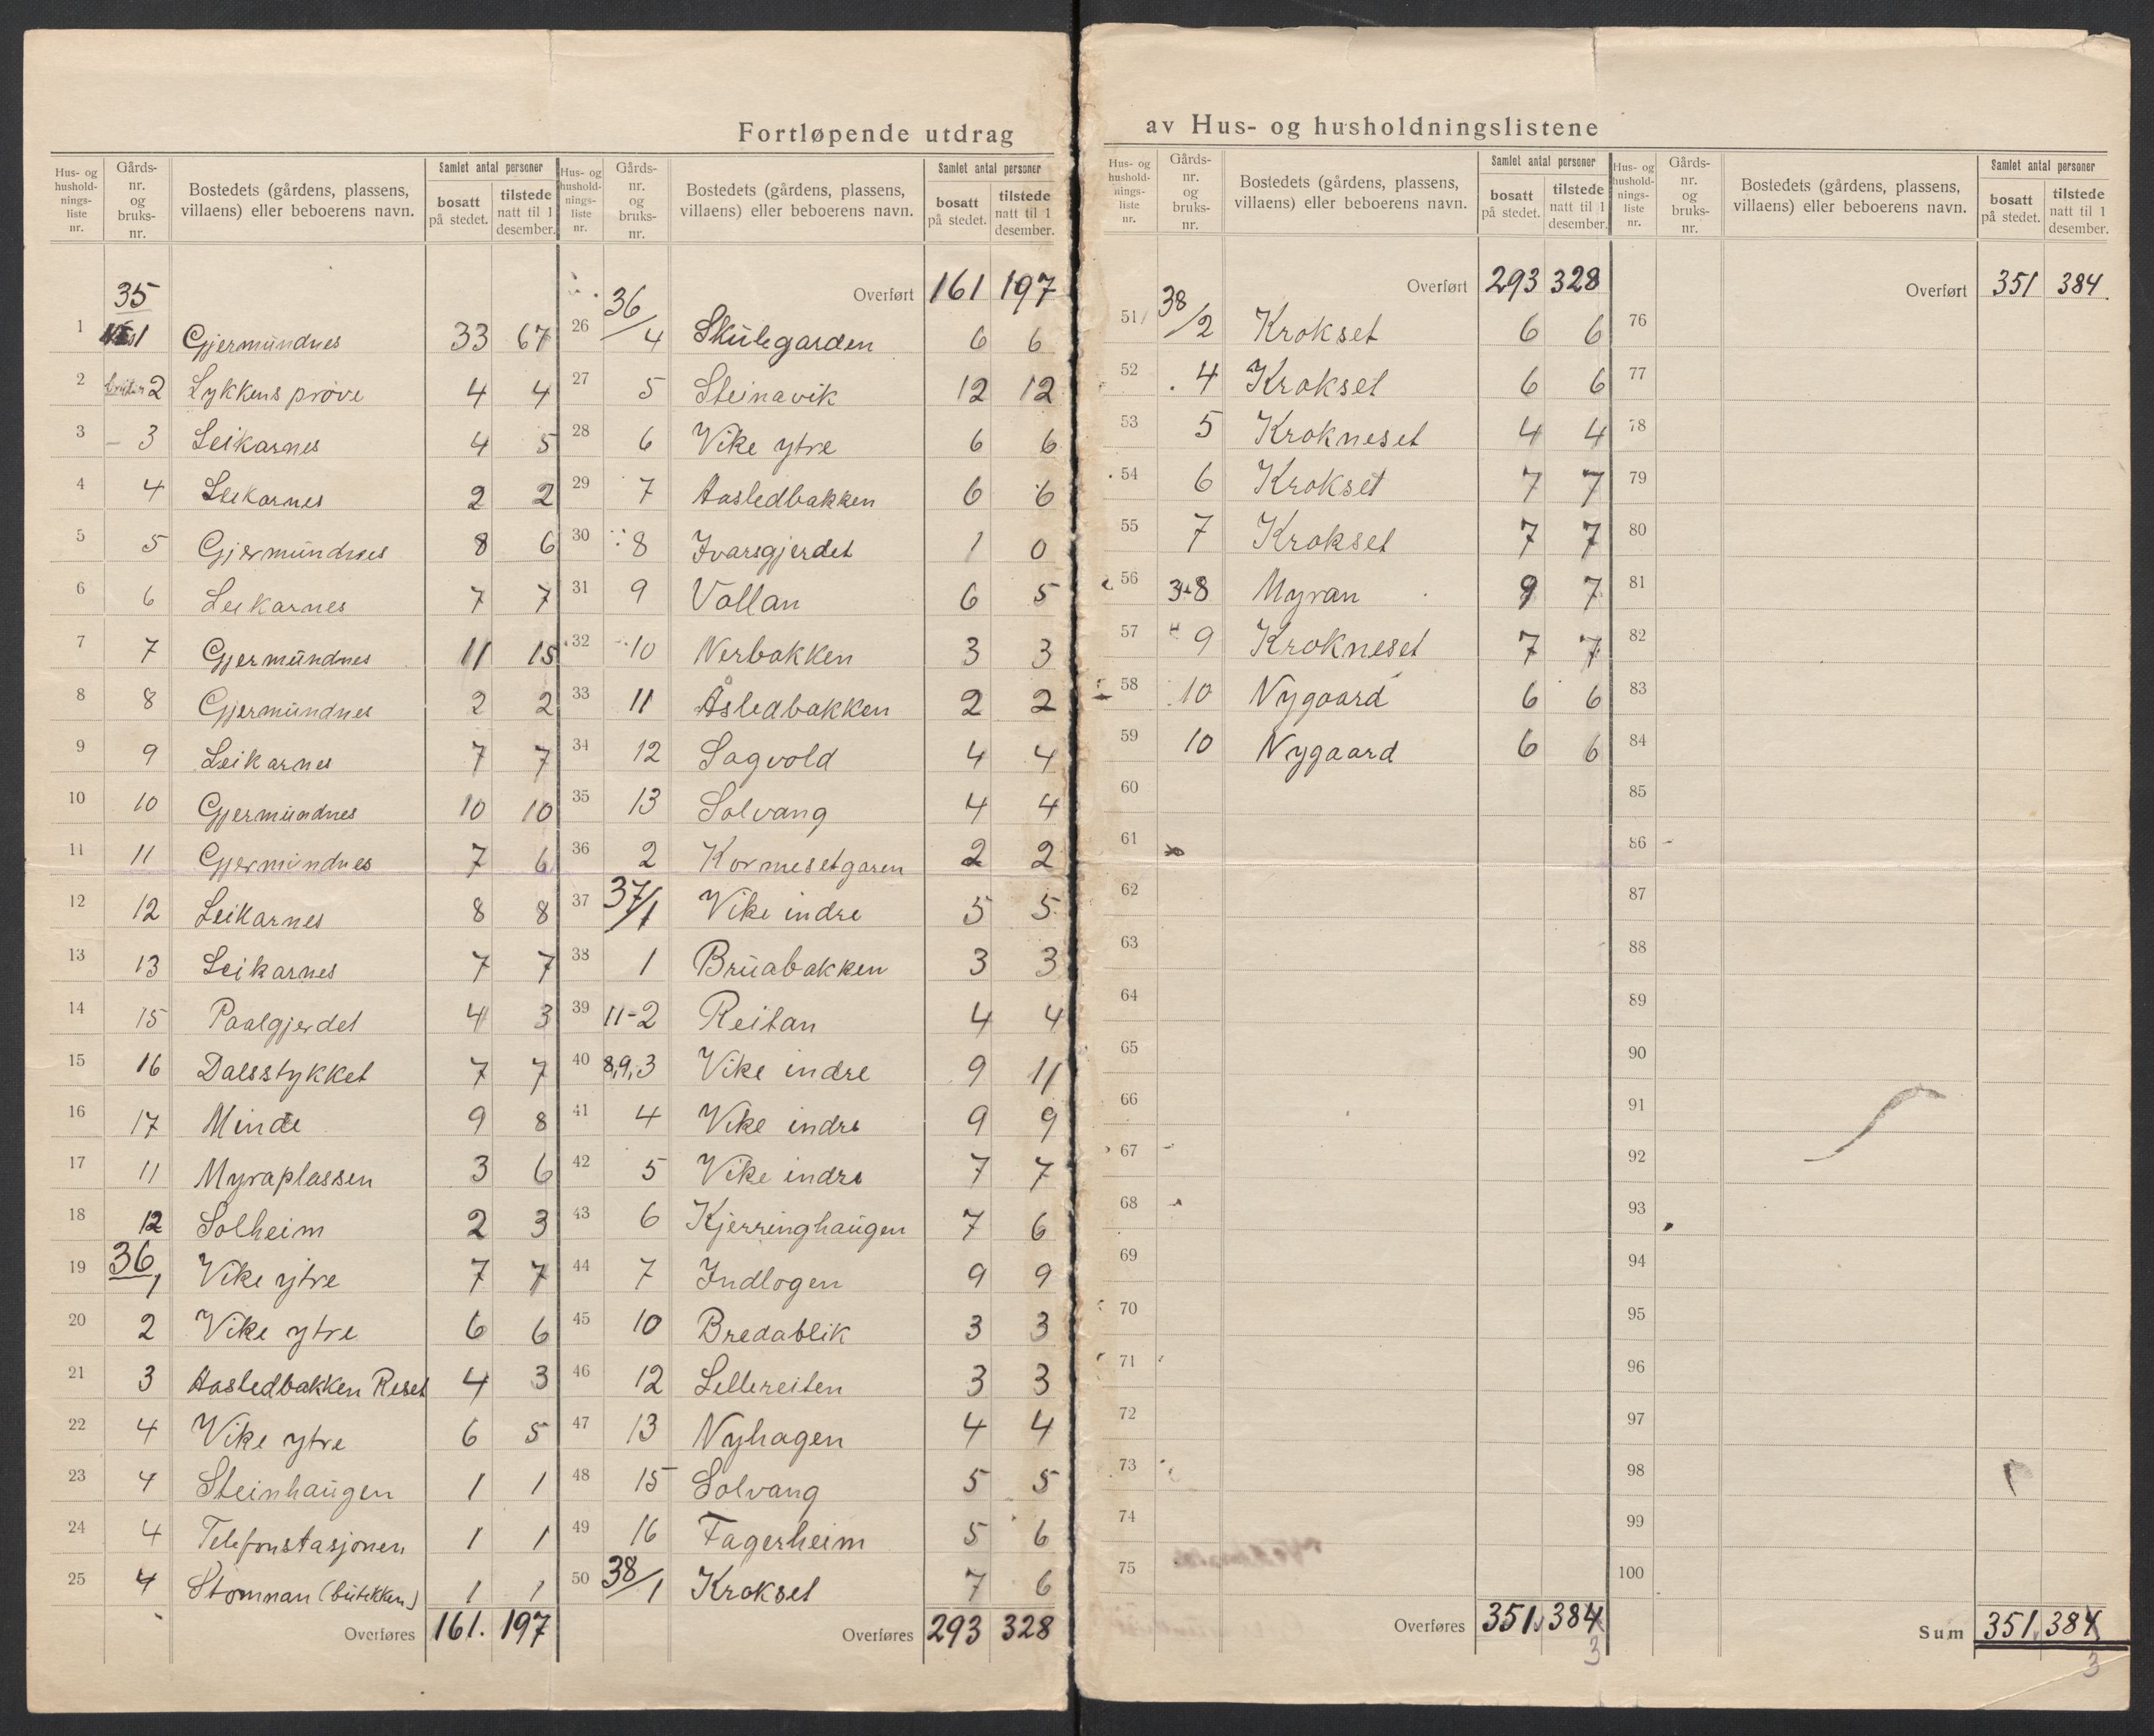 Fortløpende utdrag av Hus- og husholdningslistene
Hus- og hushold-nings-liste nr. | Gårds-nr. og bruks-nr. | Bostedets (gårdens, plassens, villaens) eller beboerens navn. | Samlet antal personer | bosatt på stedet. | tilstede natt til 1 desember.
35
1 1 Gjermundnes 33 67
2 2 Lykkens prøve 4 4
3 - 3 Leikarnes 4 5
4 4 Leikarnes 2 2
5 5 Gjermundnes 8 6
6 6 Leikarnes 7 7
7 7 Gjermundnes 11 15
8 8 Gjermundnes 2 2
9 9 Leikarnes 7 7
10 10 Gjermundnes 10 10
11 11 Gjermundnes 7 6
12 12 Leikarnes 8 8
13 13 Leikarnes 7 7
14 15 Paalgjerdet 4 3
15 16 Dalsstykket 7 7
16 17 Minde 9 8
17 11 Myraplassen 3 6
18 12 Solheim 2 3
19 36, 1 Vike ytre 7 7
20 2 Vike ytre 6 6
21 3 Aasledbakken Reset 4 3
22 4 Vike ytre 6 5
23 4 Steinhaugen 1 1
24 4 Telefonstasjonen 1 1
25 4 Stomnan (butikken) 1 1
Overføres 161. 197
Hus- og hushold-nings-liste nr. | Gårds-nr. og bruks-nr. | Bostedets (gårdens, plassens, villaens) eller beboerens navn. | Samlet antal personer | bosatt på stedet. | tilstede natt til 1 desember.
Overført 161 197
26 36/4 Skulegarden 6 6
27 5 Steinavik 12 12
28 6 Vike ytre 6 6
29 7 Aasledbakken 6 6
30 8 Ivarsgjerdet 1 0
31 9 Vollan 6 5
32 10 Nerbakken 3 3
33 11 Åsledbakken 2 2
34 12 Sagvold 4 4
35 13 Solvang 4 4
36 2 Kormesetgaren 2 2
37 37/1 Vike indre 5 5
38 1 Bruabakken 3 3
39 11-2 Reitan 4 4
40 8,9,3 Vike indre 9 11
41 4 Vike indre 9 9
42 5 Vike indre 7 7
43 6 Kjerringhaugen 7 6
44 7 Indlogen 9 9
45 10 Bredablik 3 3
46 12 Lillereiten 3 3
47 13 Nyhagen 4 4
48 15 Solvang 5 5
49 16 Fagerheim 5 6
50 38/1 Krokset 7 6
Overføres 293 328
Hus- og hushold-nings-liste nr. | Gårds-nr. og bruks-nr. | Bostedets (gårdens, plassens, villaens) eller beboerens navn. | Samlet antal personer | bosatt på stedet. | tilstede natt til 1 desember.
Overført 293 328
51 38/2 Krokset 6 6
52 4 Krokset 6 6
53 5 Krokneset 4 4
54 6 Krokset 7 7
55 7 Krokset 7 7
56 3+8 Myran 9 7
57 9 Krokneset 7 7
58 10 Nygaard 6 6
59 10 Nygaard 6 6
60
61
62
63
64
65
66
67
68
69
70
71
72
73
74
75
Overføres 351. 384
3
Hus- og hushold-nings-liste nr. | Gårds-nr. og bruks-nr. | Bostedets (gårdens, plassens, villaens) eller beboerens navn. | Samlet antal personer | bosatt på stedet. | tilstede natt til 1 desember.
Overført 351 384
76
77
78
79
80
81
82
83
84
85
86
87
88
89
90
91
92
93
94
95
96
97
98
99
100
Sum 351. 384
3